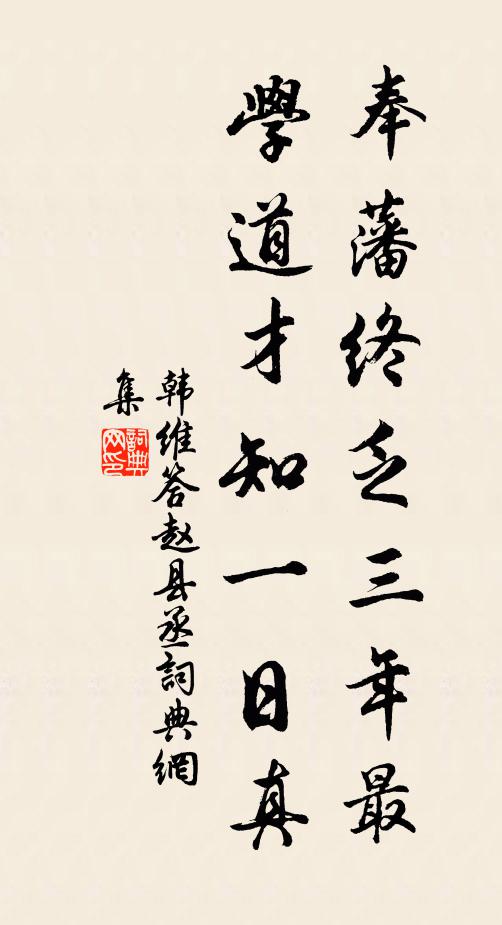 奉藩终乏三年最
學道才知一日真
韩维答赵县丞詞典網
集
詞典
网印